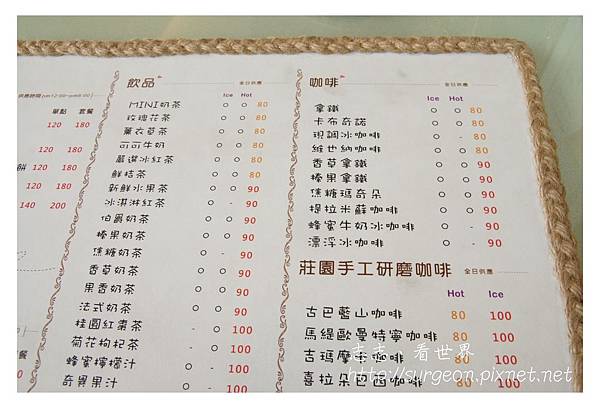 供應時間(pm12:00~pm8:00)
單點 套餐
120 180
120 180
餅 120 180
120 180
140 200
飲品 全日供應
Ice Hot
MINI奶茶 ○ ○ 80
玫瑰花茶 ○ ○ 80
薰衣草茶 ○ ○ 80
可可牛奶 ○ ○ 80
嚴選冰紅茶 ○ - 80
鮮桔茶 ○ ○ 80
新鮮水果茶 ○ ○ 90
冰淇淋紅茶 ○ - 90
伯爵奶茶 ○ ○ 90
榛果奶茶 ○ ○ 90
焦糖奶茶 ○ ○ 90
香草奶茶 ○ ○ 90
果香奶茶 ○ ○ 90
法式奶茶 ○ ○ 90
桂圓紅棗茶 100
菊花枸杞茶 100
蜂蜜檸檬汁 100
奇異果汁 ○ - 100
咖啡 全日供應
Ice Hot
拿鐵 ○ ○ 80
卡布奇諾 ○ ○ 80
現調冰咖啡 ○ - 80
維也納咖啡 ○ ○ 80
香草拿鐵 ○ ○ 90
榛果拿鐵 ○ ○ 90
焦糖瑪奇朵 ○ ○ 90
提拉米蘇咖啡 ○ ○ 90
蜂蜜牛奶冰咖啡 ○ - 90
漂浮冰咖啡 ○ - 90
莊園手工研磨咖啡 全日供應
Hot Ice
古巴藍山咖啡 80 100
馬緹歐曼特寧咖啡 80 100
吉瑪摩卡咖啡 80 100
喜拉朵巴西咖啡 80 100
看世界
http://surgeon.pixnet.net